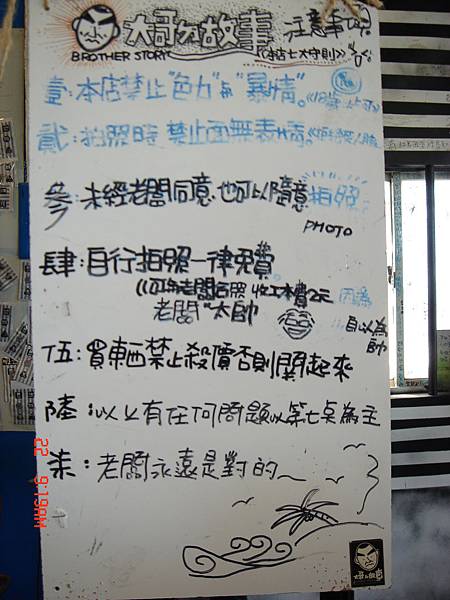 大哥的故事 注意事項
BROTHER STORY 《本店七大守則》
壹：本店禁止"色力"與"暴情"。
貳：拍照時禁止面無表情。
參：未經老闆同意也可以隨意拍照
PHOTO
肆：自行拍照一律免費。
老闆"太帥 因為
自以為帥
伍：買東西禁止殺價否則關起來
陸：以上有任何問題以第七桌為主
柒：老闆永遠是對的
22 9:19AM
大哥的故事